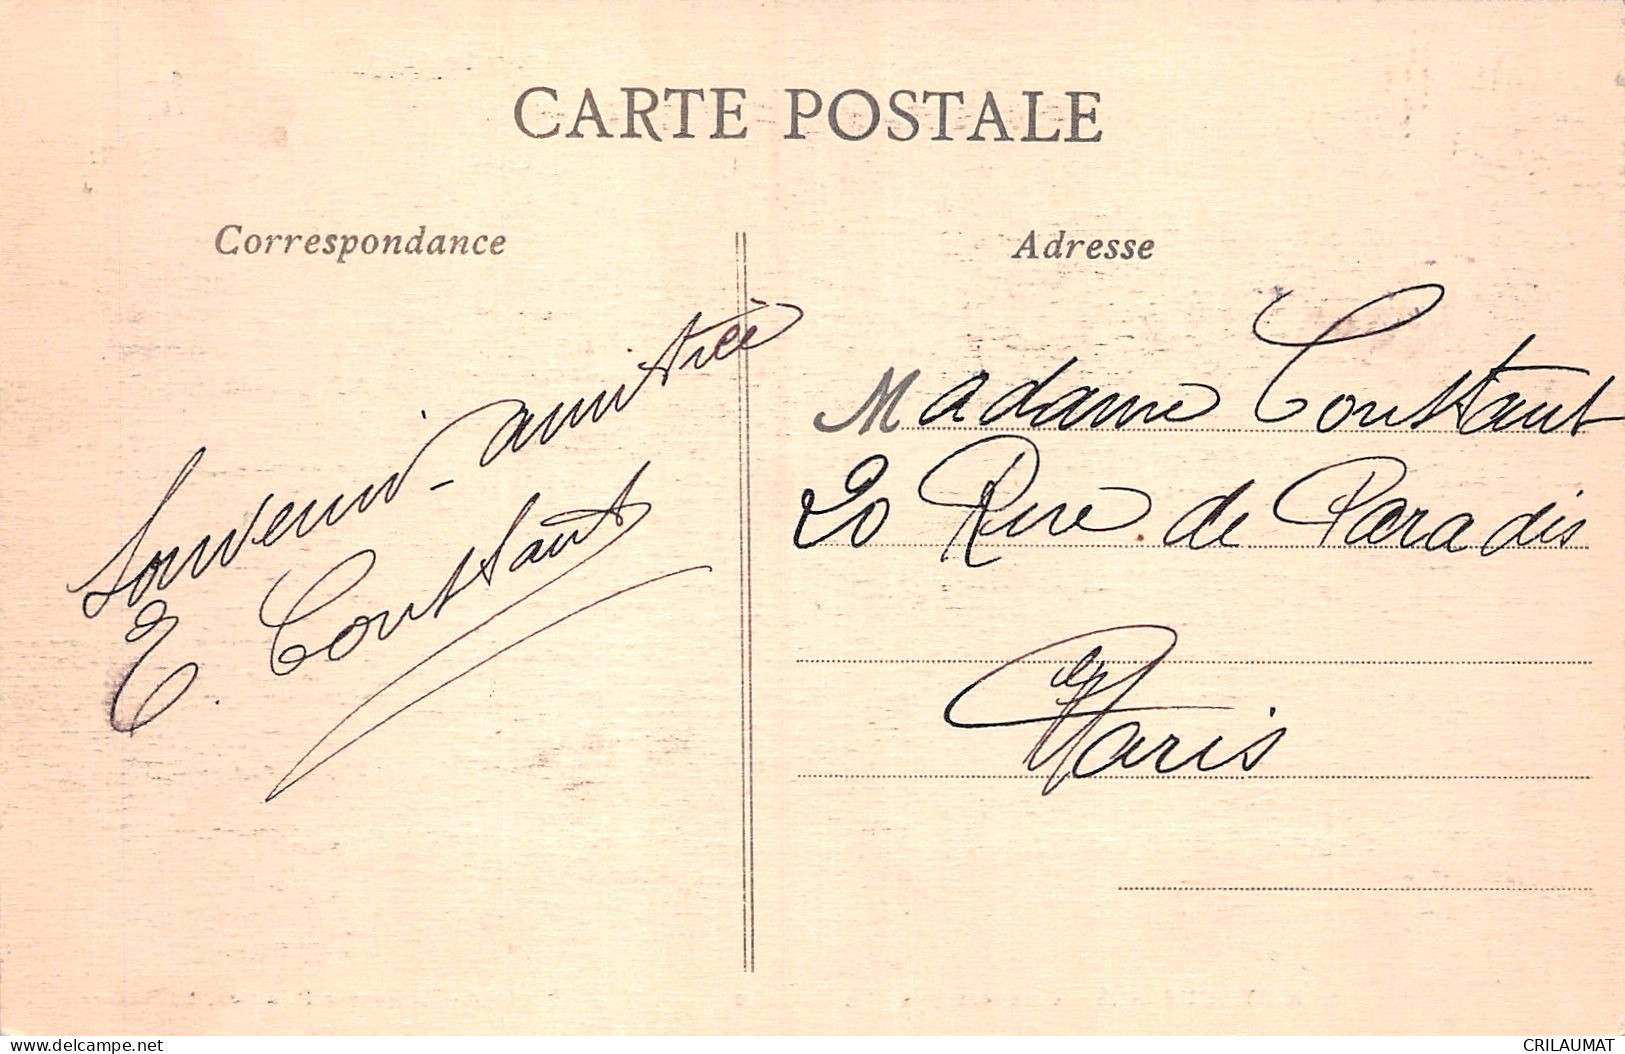 CARTE POSTALE
Correspondance
Souvenir - amitiée
E. Constant
Adresse
Madame Constant
20 Rue de Paradis
Paris
www.delcampe.net
CRILAUMAT